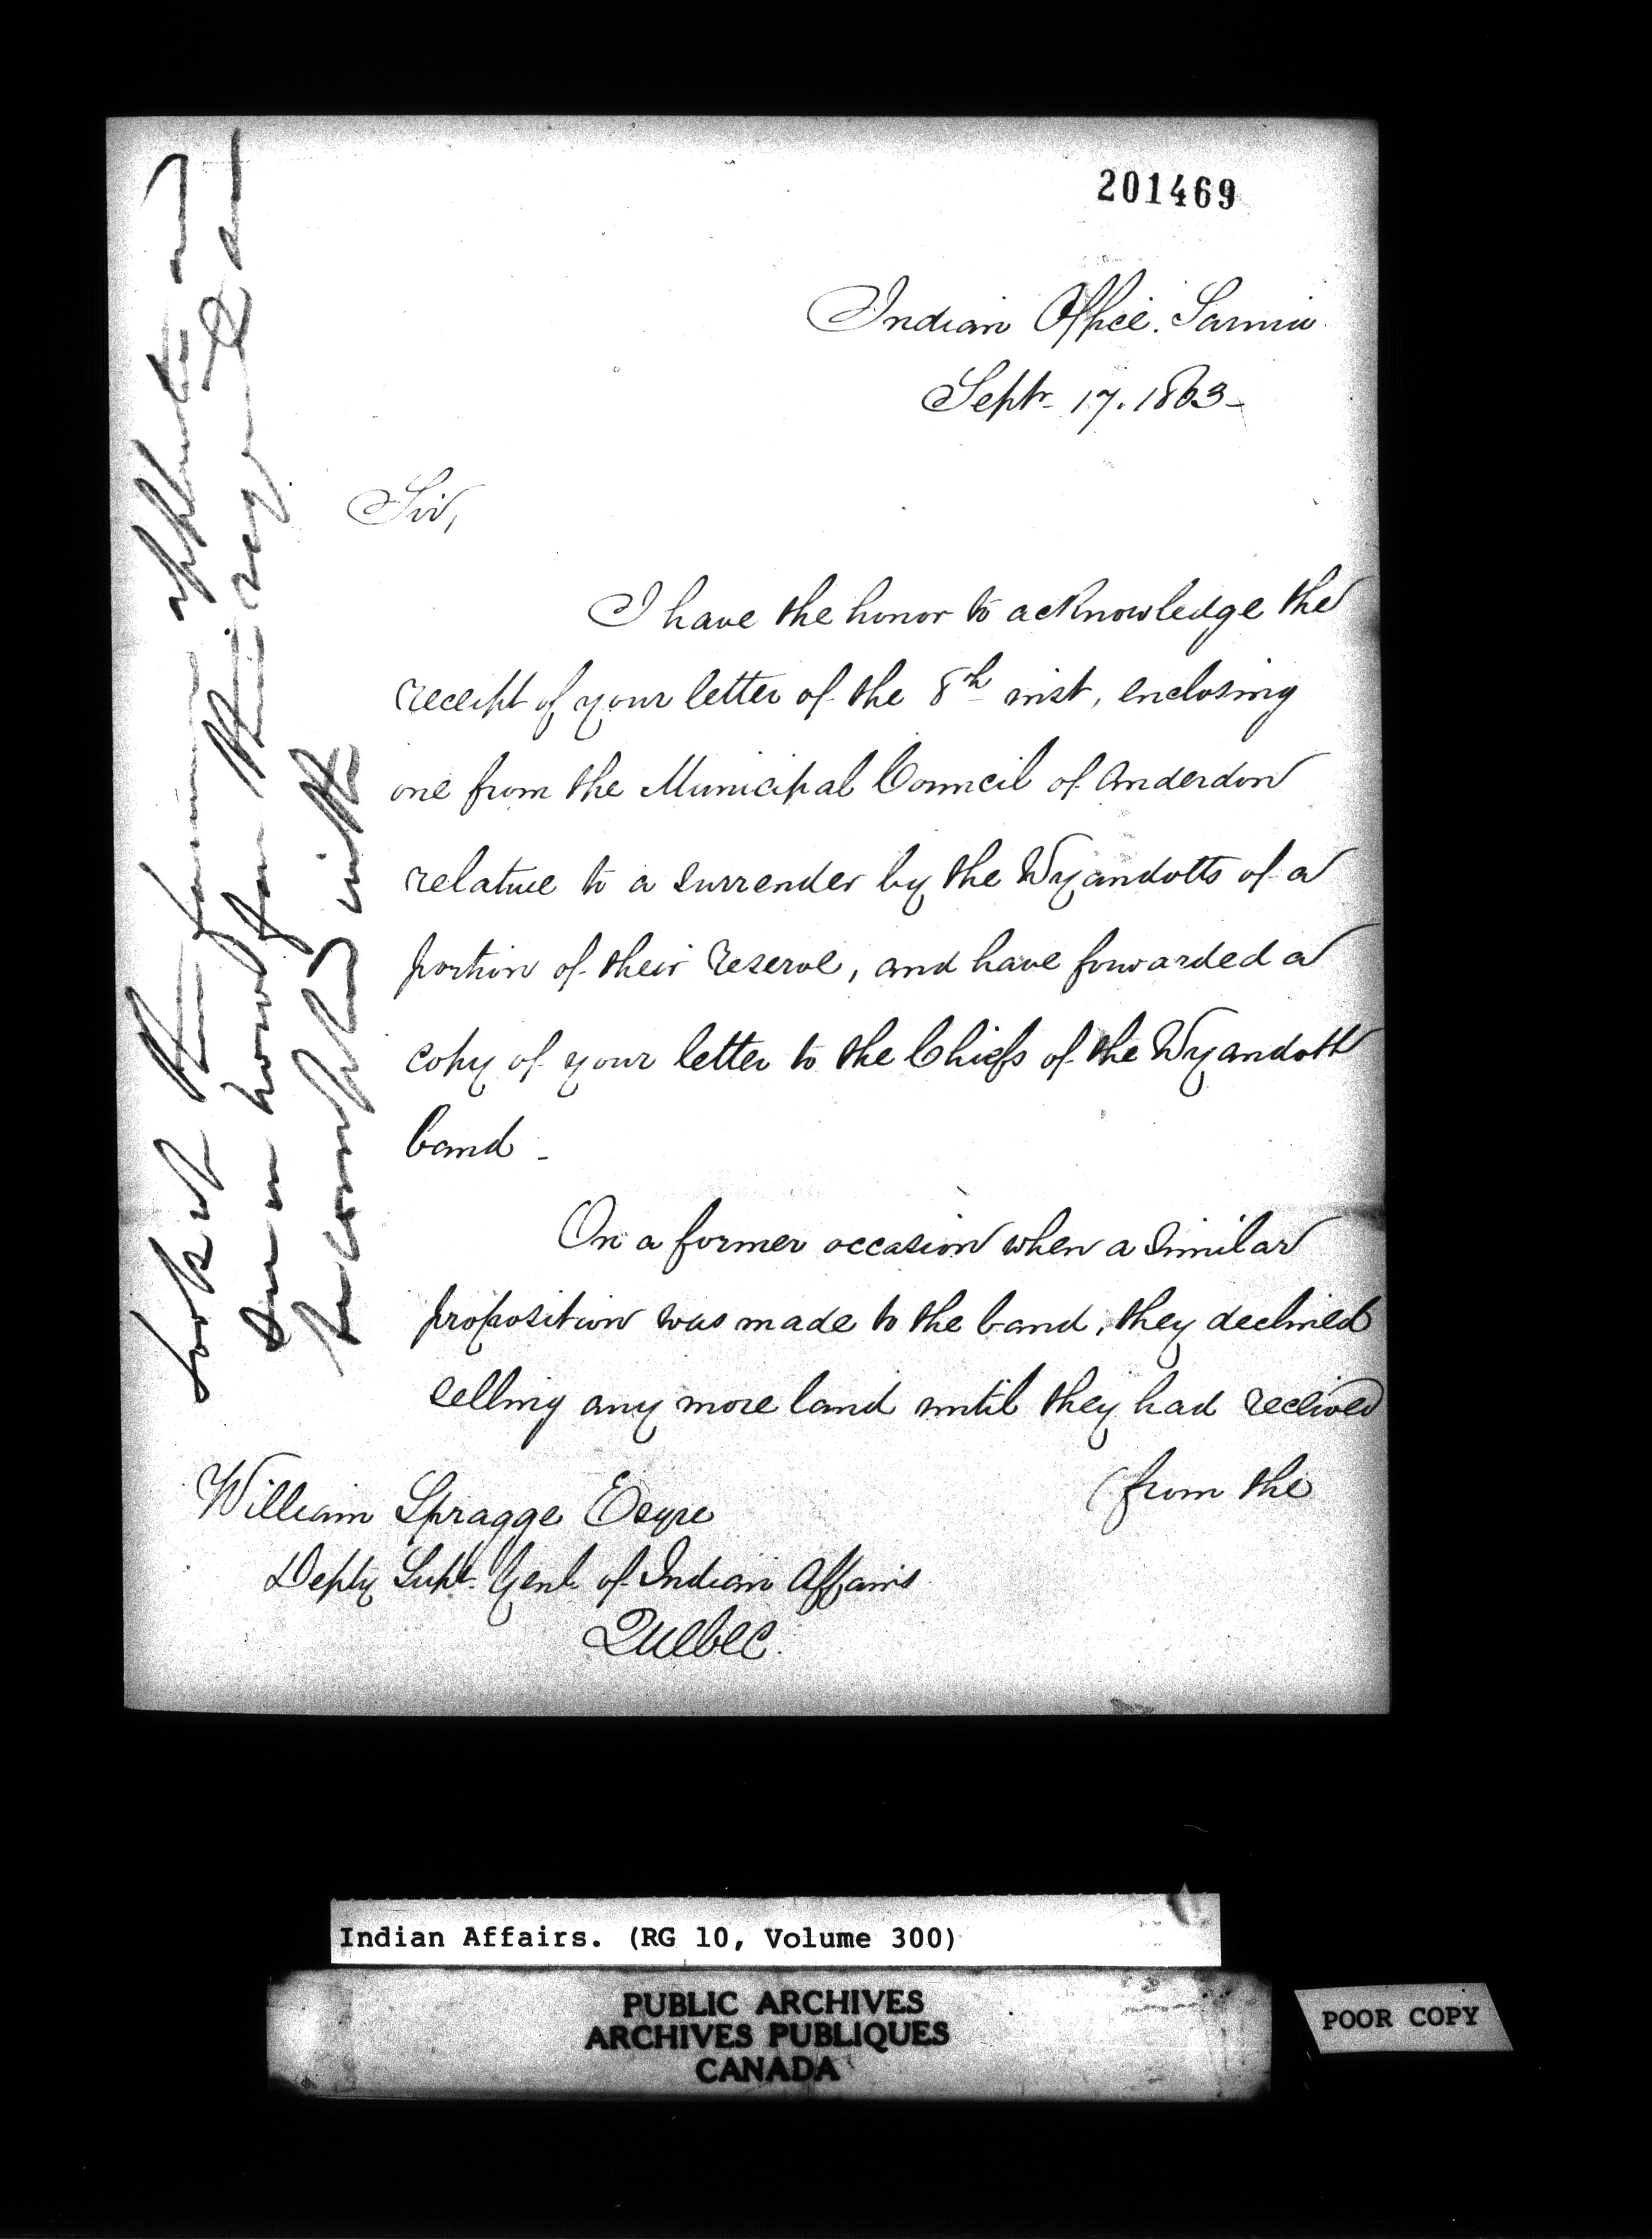 201469
Indian Office. Sarnia
Septr. 17. 1863 -
Sir,
I have the honor to acknowledge the
receipt of your letter of the 8th inst, enclosing
one from the Municipal Council of Anderdon
relative to a surrender by the Wyandotts of a
portion of their reserve, and have forwarded a
copy of your letter to the Chiefs of the Wyandott
band -
On a former occasion when a similar
proposition was made to the band, they declined
selling any more land until they had received
(from the
William Spragge Esqre
Depty Supt. Genl. of Indian Affairs
Quebec.
Look at the former application and
see how far their request can
be complied with
Indian Affairs. (RG 10, Volume 300)
PUBLIC ARCHIVES
ARCHIVES PUBLIQUES
CANADA
POOR COPY